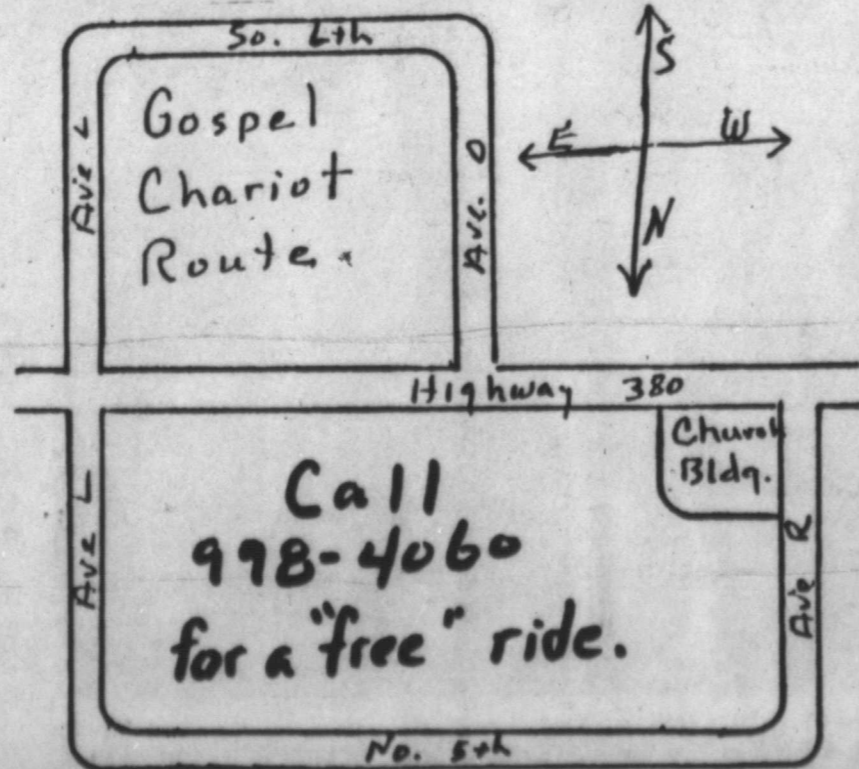 So. 6th
Gospel
Chariot
Route.
Ave L
Ave. O
S
E
W
N
Highway 380
Church
Bldg.
Call
998-4060
for a "free" ride.
Ave L
Ave R
No. 5th